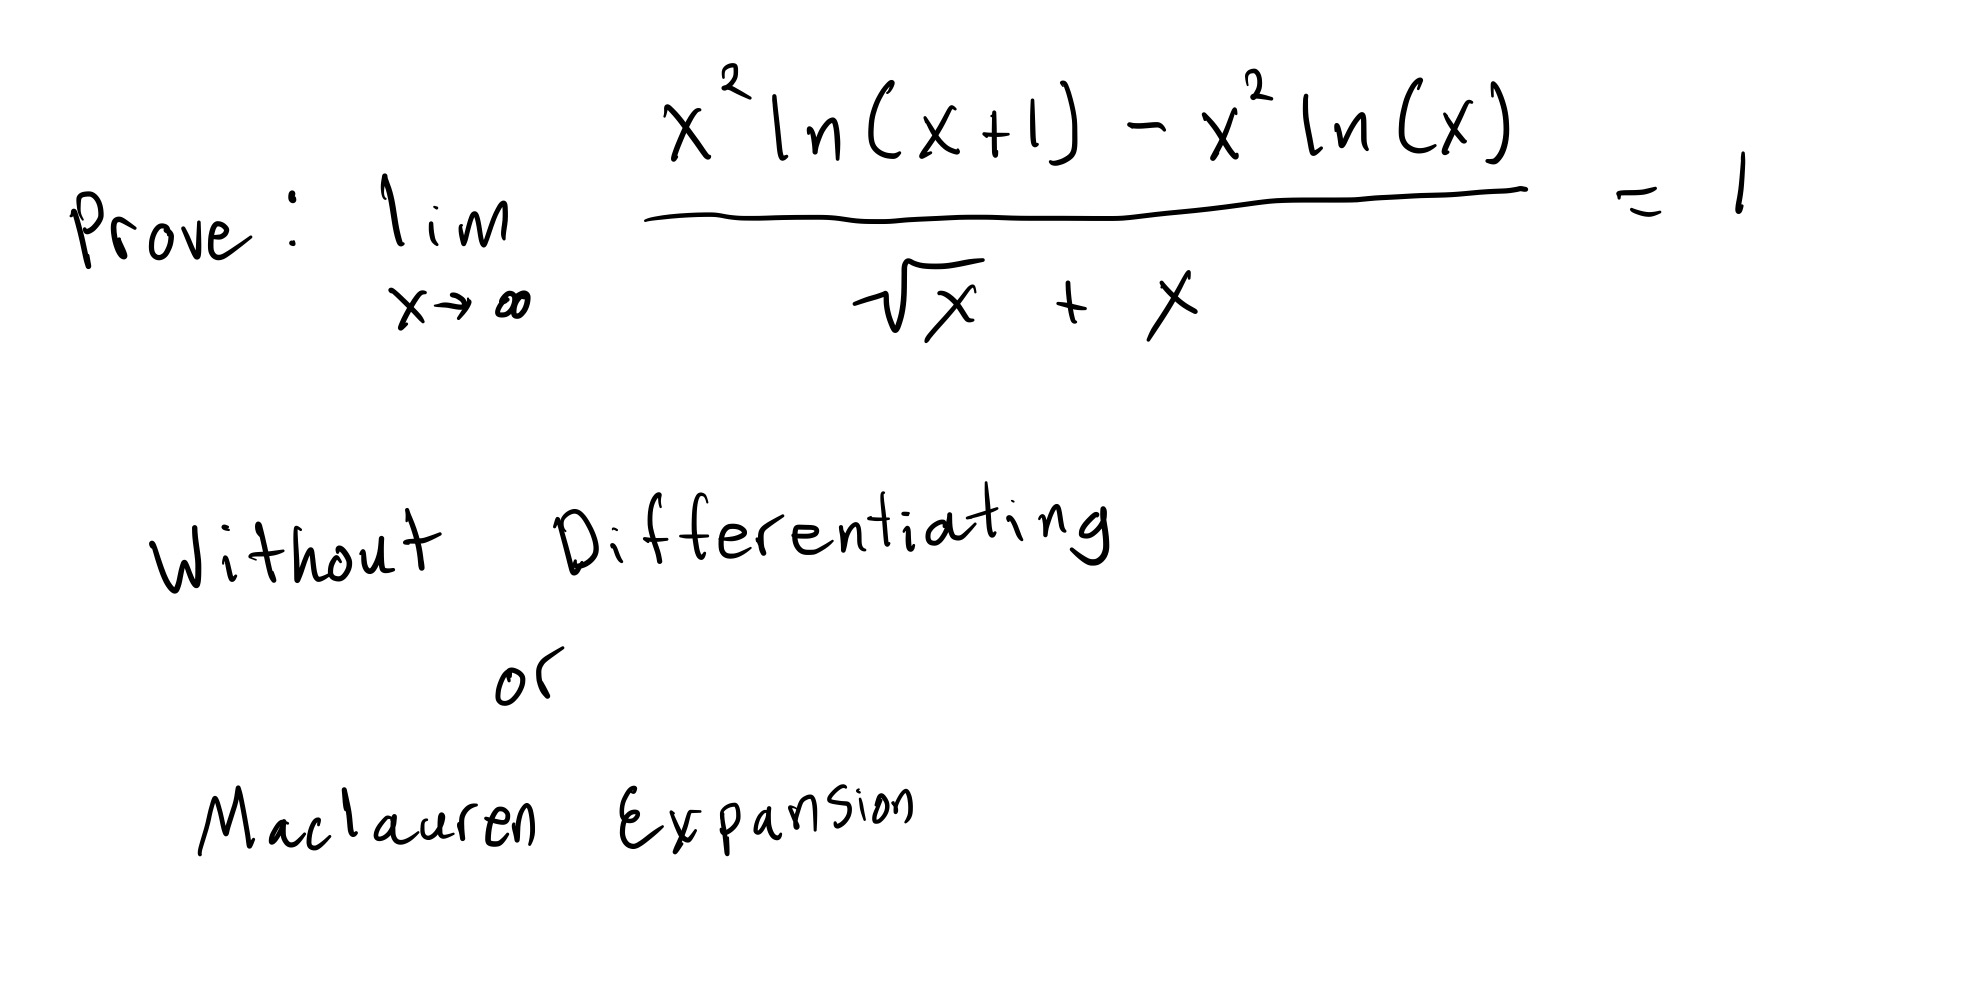 Prove: lim x→∞ (x² ln(x+1) - x² ln(x)) / (√x + x) = 1
Without Differentiating
or
Maclauren Expansion